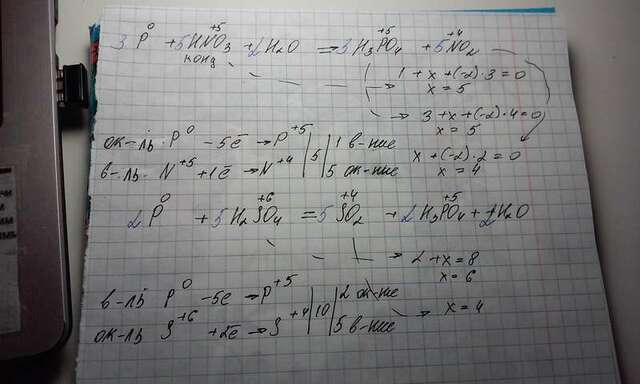 3P⁰ + 5HN⁺⁵O₃ + 2H₂O = 3H₃P⁺⁵O₄ + 5N⁺⁴O₂
конц
1 + x + (-2)·3 = 0
x = 5
3 + x + (-2)·4 = 0
x = 5
ок-ль P⁰ - 5e̅ → P⁺⁵ | 5 | 1 в-ние
в-ль N⁺⁵ + 1e̅ → N⁺⁴ | | 5 ок-ние
x + (-2)·2 = 0
x = 4
2P⁰ + 5H₂S⁺⁶O₄ = 5S⁺⁴O₂ + 2H₃P⁺⁵O₄ + 2H₂O
2 + x = 8
x = 6
в-ль P⁰ - 5e̅ → P⁺⁵ | 10 | 2 ок-ние
ок-ль S⁺⁶ + 2e̅ → S⁺⁴ | | 5 в-ние
x = 4